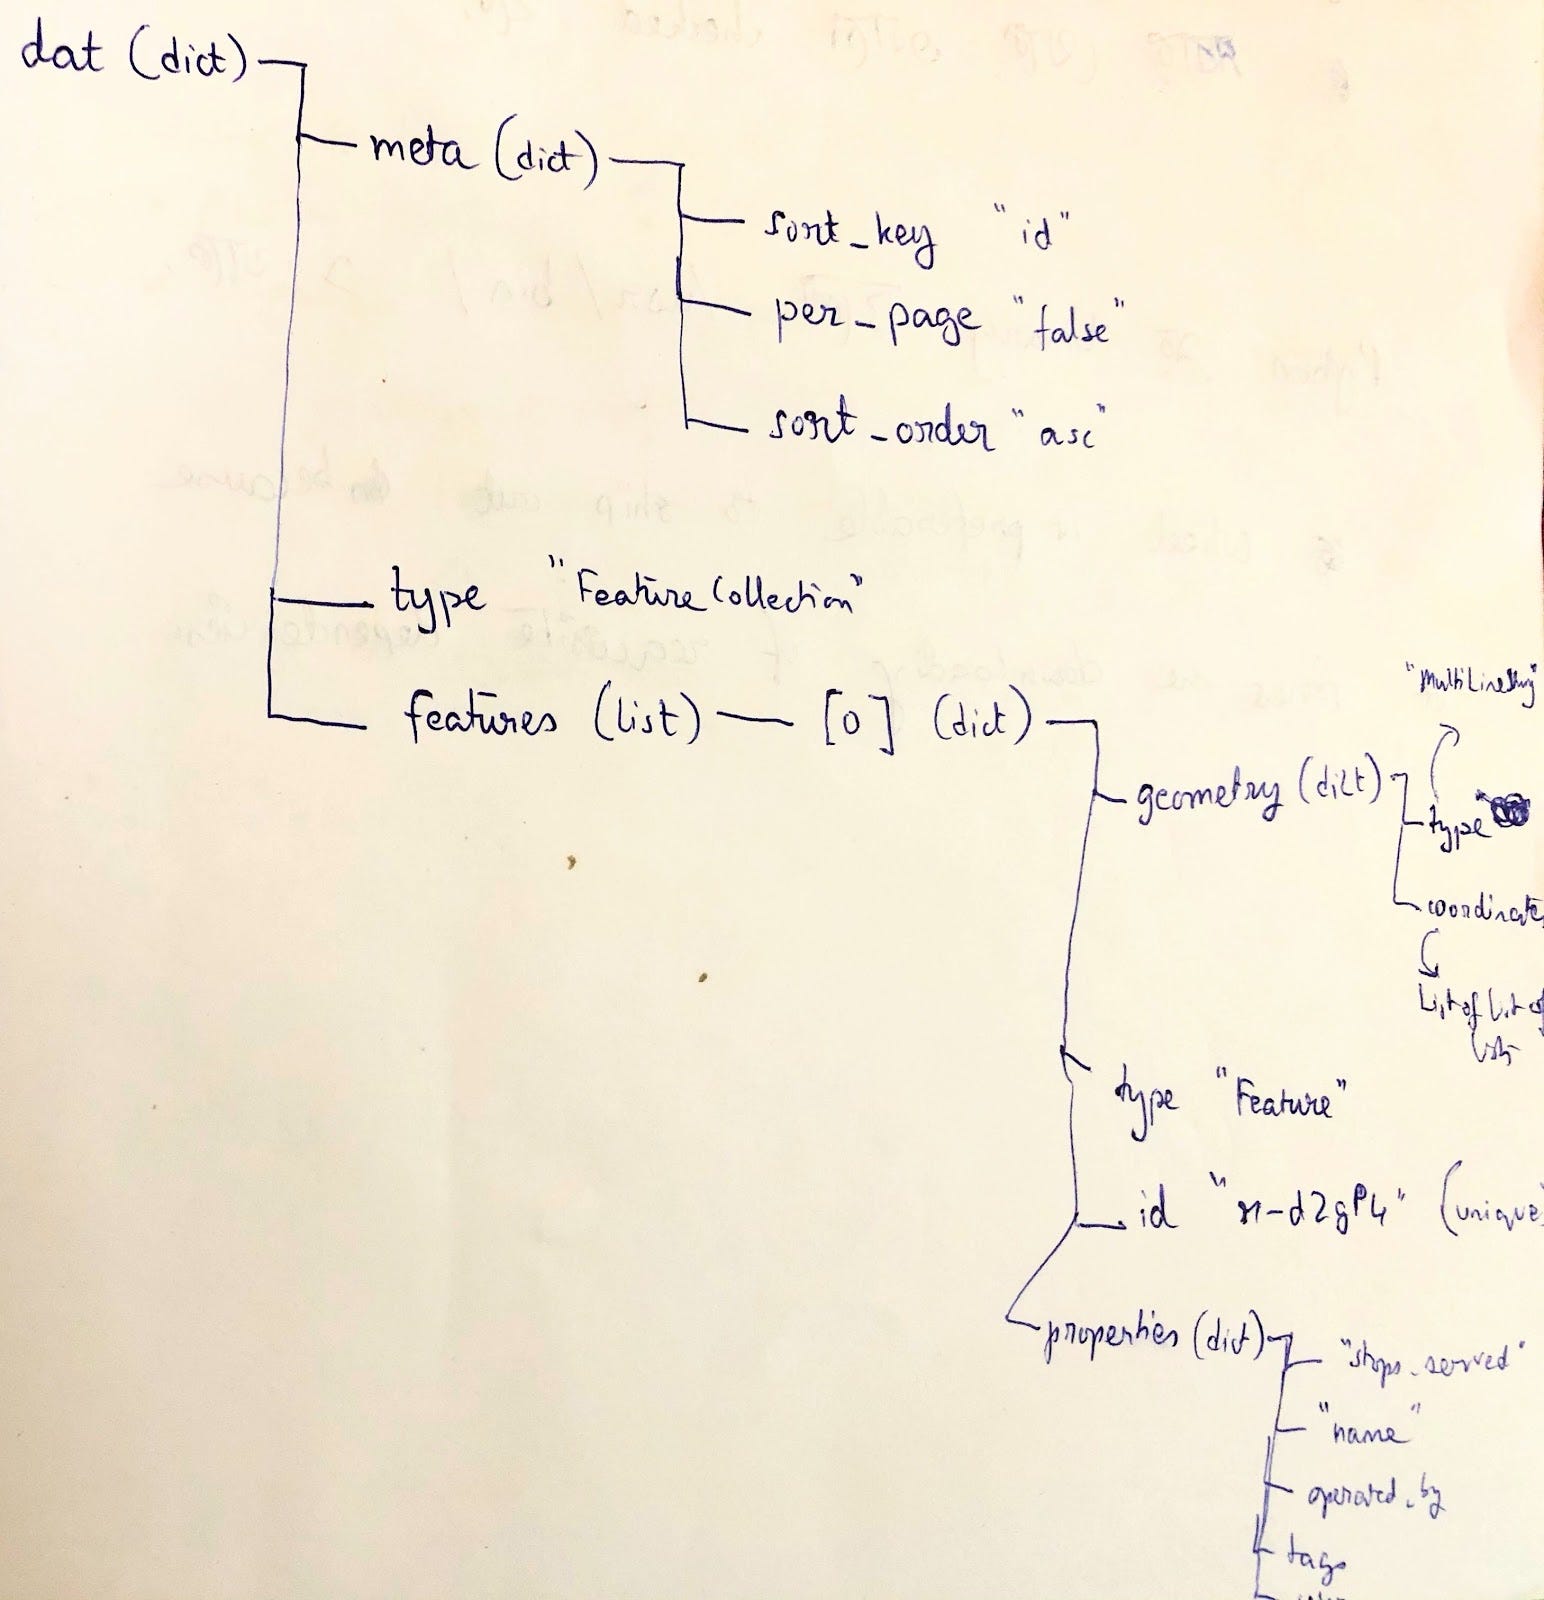 dat (dict)
meta (dict)
sort_key "id"
per_page "false"
sort_order "asc"
type "FeatureCollection"
features (list) [0] (dict)
geometry (dict)
"MultiLineString"
type
coordinates
List of list of
lists
type "Feature"
id "r-d2gP4" (unique)
properties (dict)
"stops_served"
"name"
operated_by
tags